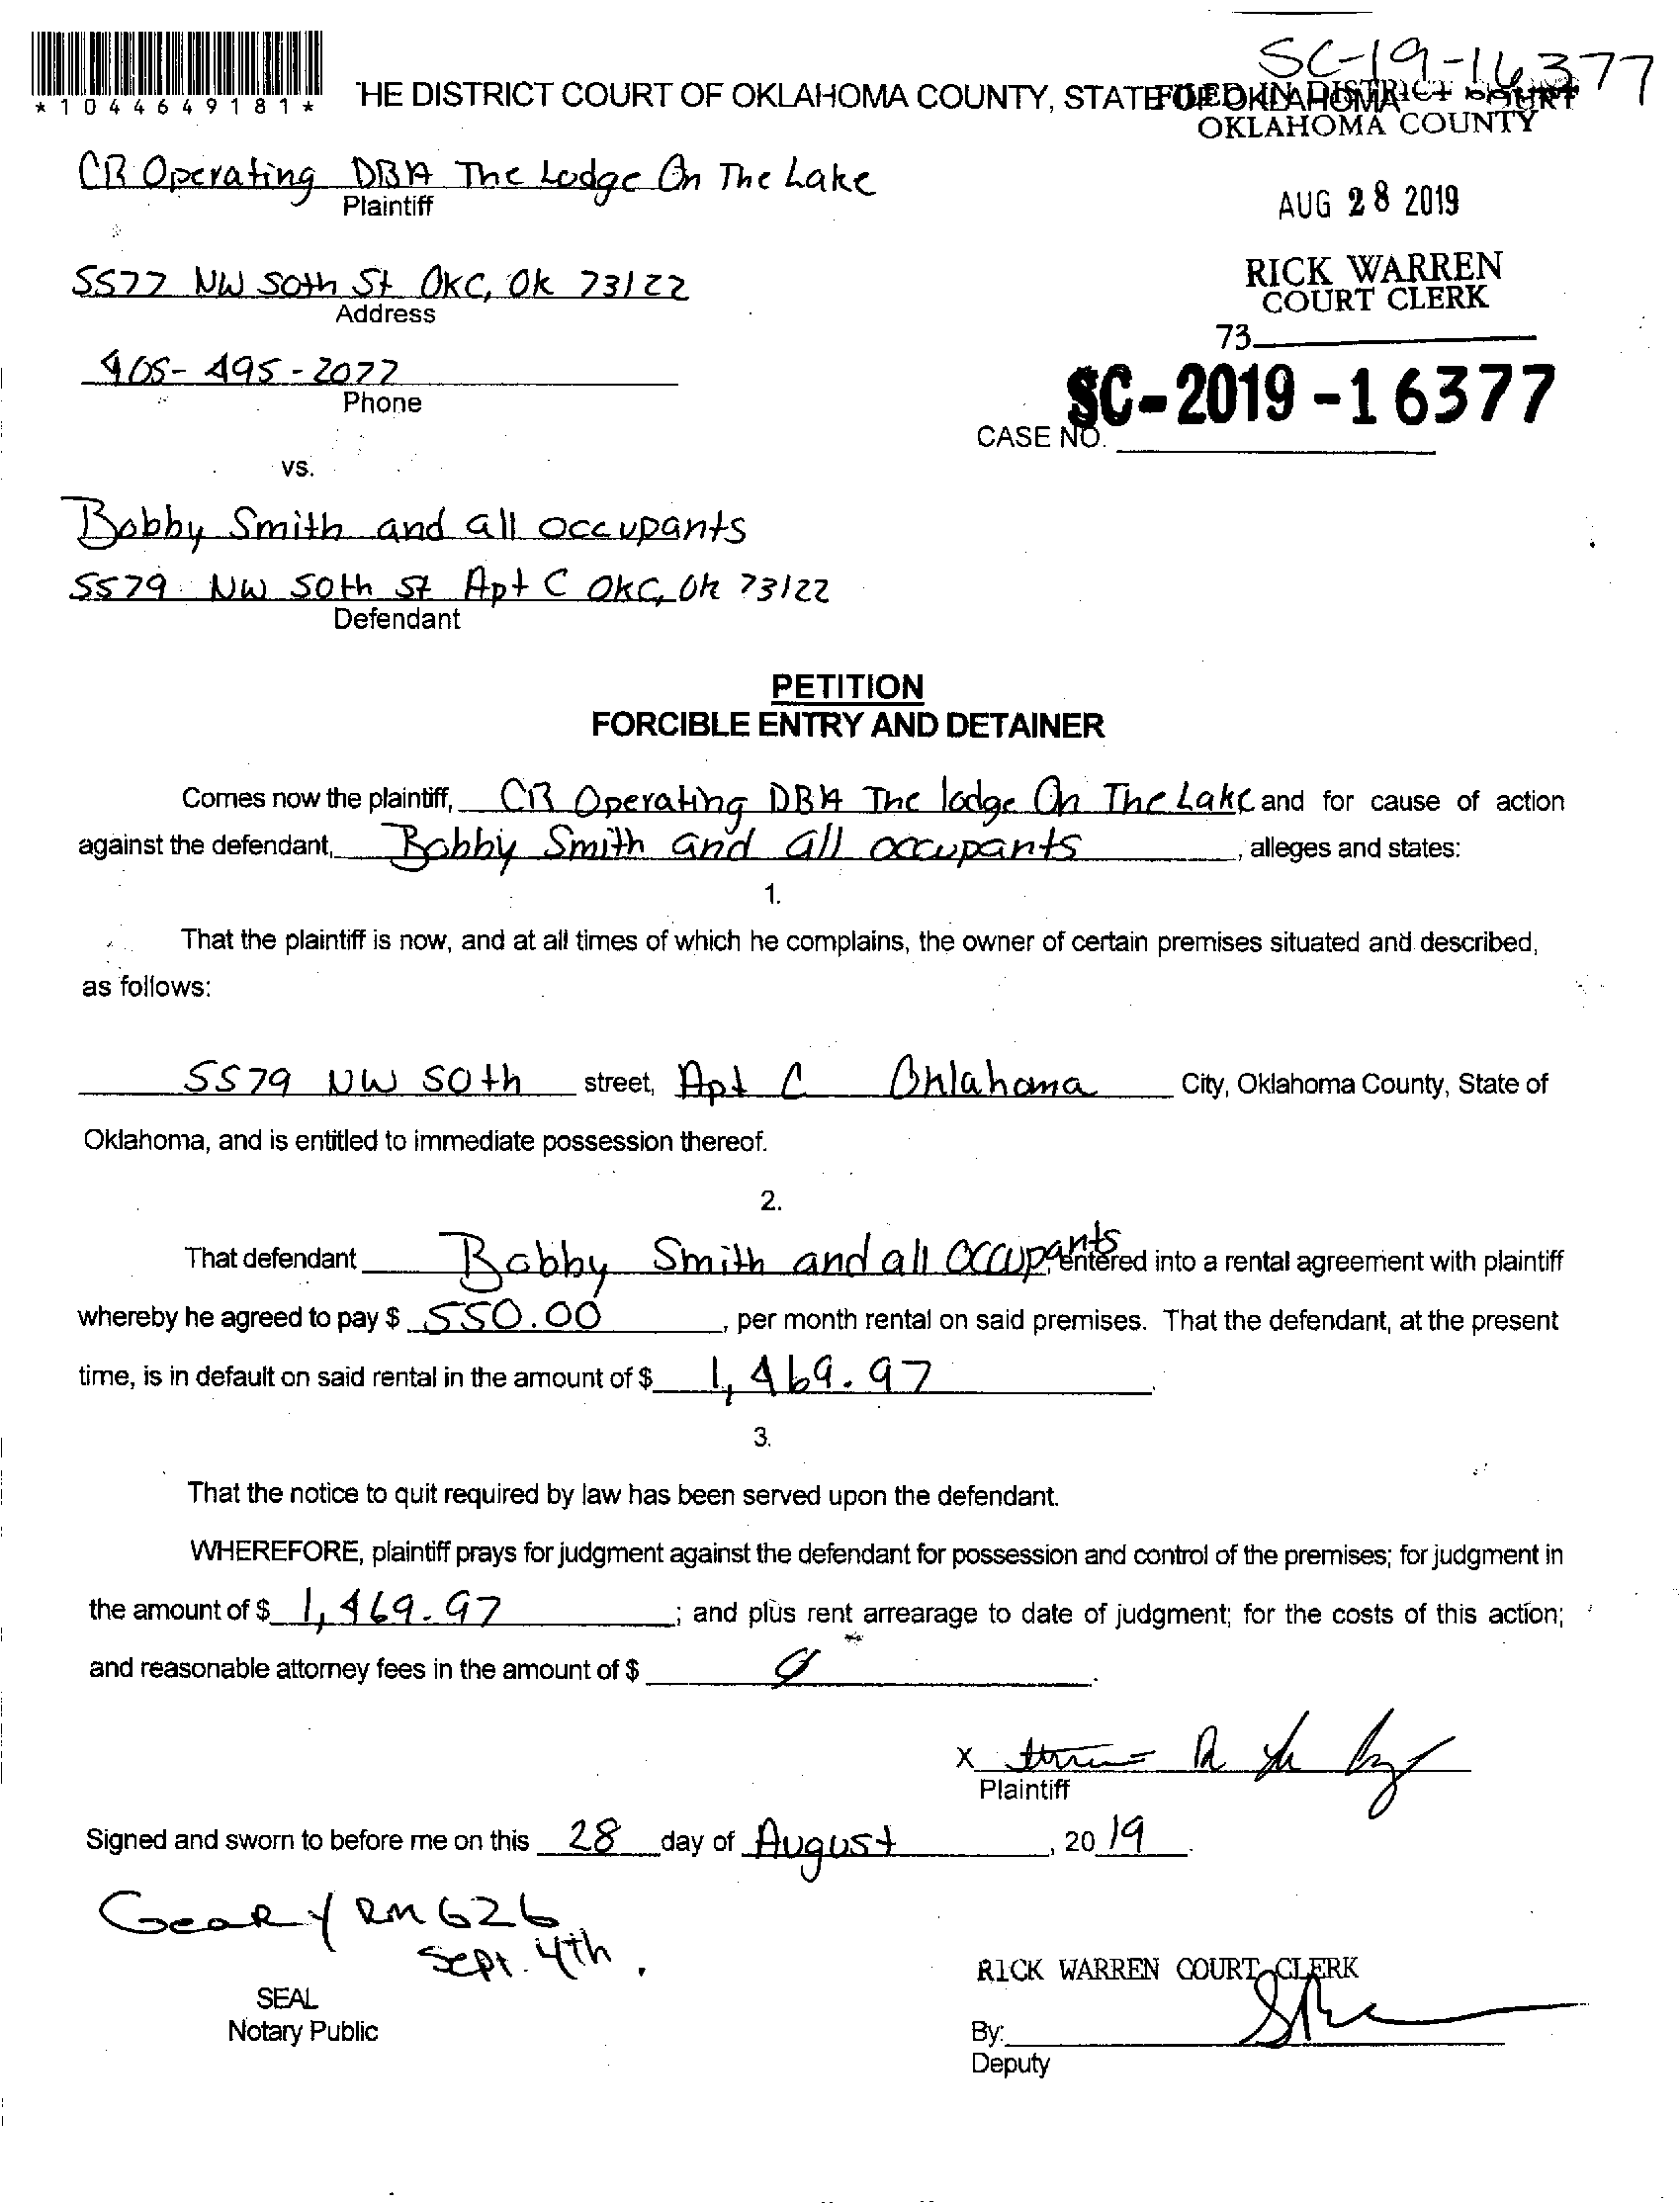 SC-19-16377
*1044649181*
THE DISTRICT COURT OF OKLAHOMA COUNTY, STATE OF OKLAHOMA
FILED IN DISTRICT COURT
OKLAHOMA COUNTY
CR Operating DBA The Lodge On The Lake
Plaintiff
AUG 28 2019
5577 NW 50th St OKC, Ok 73122
Address
RICK WARREN
COURT CLERK
73
405-495-2077
Phone
SC-2019-16377
CASE NO.
vs.
Bobby Smith and all occupants
5579 NW 50th St Apt C OKC, Ok 73122
Defendant
PETITION
FORCIBLE ENTRY AND DETAINER
Comes now the plaintiff, CR Operating DBA The lodge On The Lake and for cause of action
against the defendant, Bobby Smith and all occupants, alleges and states:
1.
That the plaintiff is now, and at all times of which he complains, the owner of certain premises situated and described,
as follows:
5579 NW 50th street, Apt C Oklahoma City, Oklahoma County, State of
Oklahoma, and is entitled to immediate possession thereof.
2.
That defendant Bobby Smith and all occupants, entered into a rental agreement with plaintiff
whereby he agreed to pay $ 550.00, per month rental on said premises. That the defendant, at the present
time, is in default on said rental in the amount of $ 1,469.97.
3.
That the notice to quit required by law has been served upon the defendant.
WHEREFORE, plaintiff prays for judgment against the defendant for possession and control of the premises; for judgment in
the amount of $ 1,469.97; and plus rent arrearage to date of judgment; for the costs of this action;
and reasonable attorney fees in the amount of $ 0.
X
Plaintiff
Signed and sworn to before me on this 28 day of August, 2019.
Geary RM 626
Sept. 4th.
SEAL
Notary Public
RICK WARREN COURT CLERK
By:
Deputy